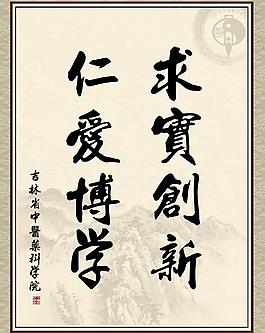 求實創新
仁愛博学
吉林省中醫藥科学院